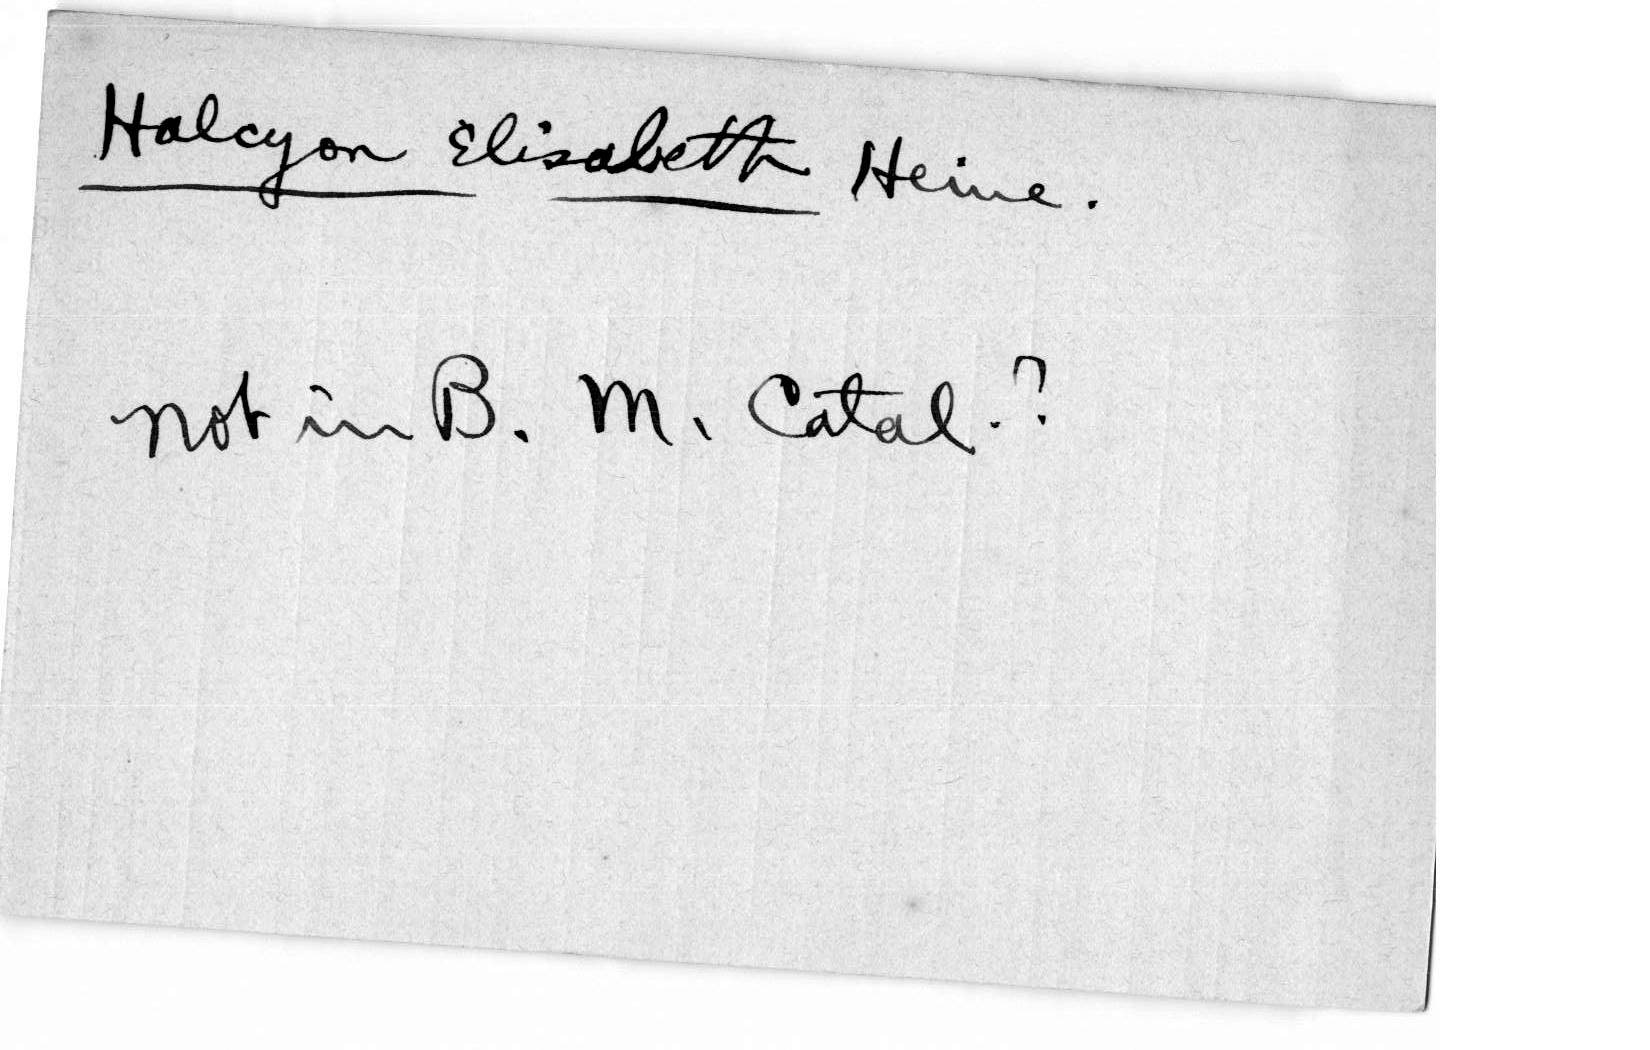 Halcyon Elisabeth Heine.
not in B. M. Catal.?